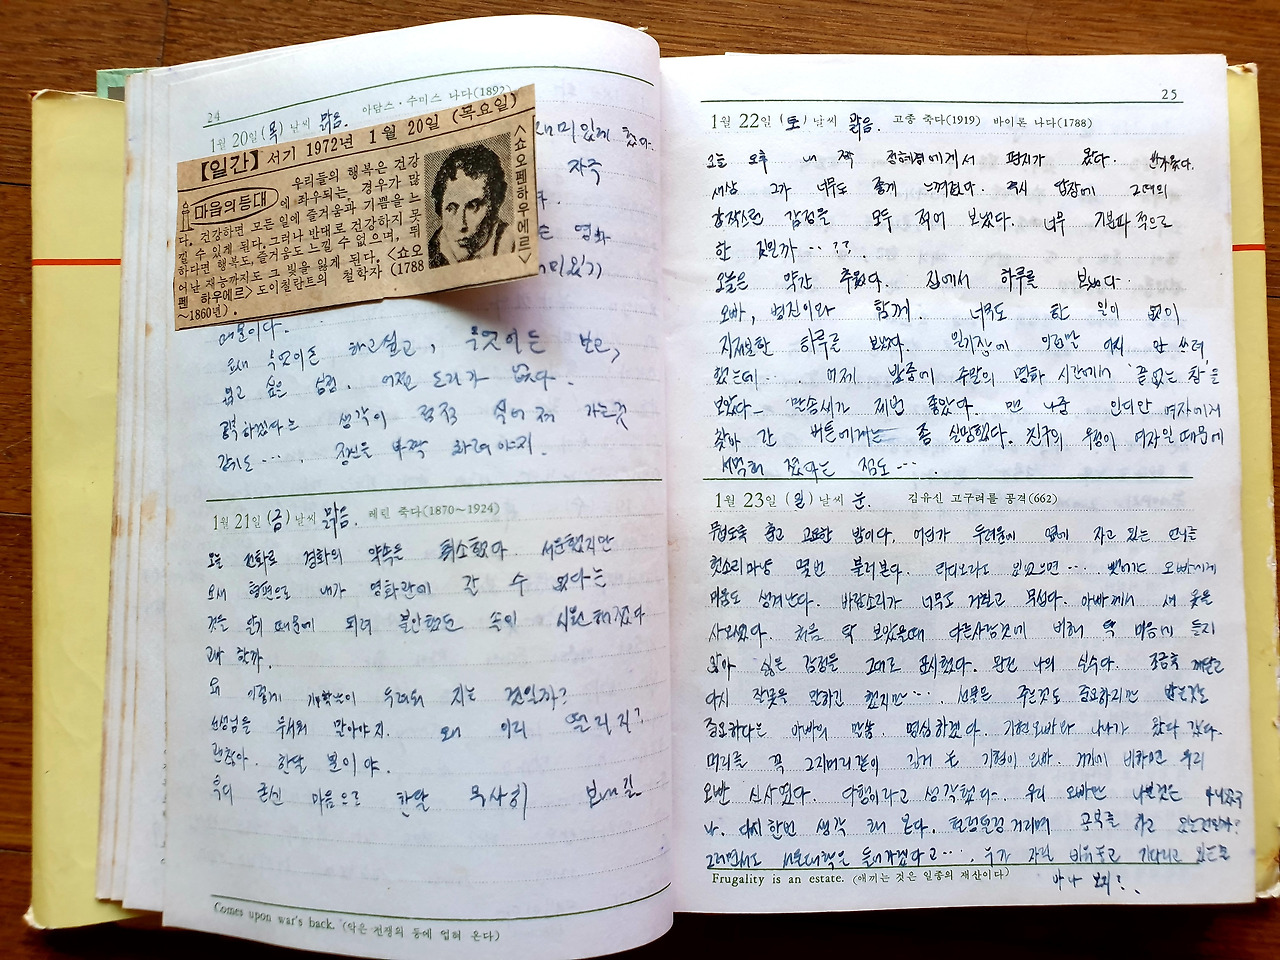 24
아담스·수미스 나다(1892)
1월 20일 (목) 날씨 맑음.
【일간】 서기 1972년 1월 20일 (목요일)
마음의등대
우리들의 행복은 건강
에 좌우되는 경우가 많
다. 건강하면 모든 일에 즐거움과 기쁨을 느
낄 수 있게 된다. 그러나 반대로 건강하지 못
하다면 행복도, 즐거움도 느낄 수 없으며, 뛰
어난 재능까지도 그 빛을 잃게 된다. <쇼오
펜 하우에르> 도이칠란트의 철학자 (1788
~1860년).
<쇼오펜하우에르>
재미있게 했다.
자주
영화
재미있기
때문이다.
요새 무엇이든 하고싶고, 무엇이든 보고,
싶은 심정. 어쩔 도리가 없다.
노력하겠다는 생각이 점점 적어져 가는것
같기도 ···. 정신을 바짝 차려야지.
1월 21일 (금) 날씨 맑음. 레닌 죽다(1870~1924)
오늘 전화로 경화의 약속은 취소했다 서운했지만
요새 형편으로 내가 영화관에 갈 수 없다는
것을 알기 때문에 되려 불안했던 속이 시원해졌다
고나 할까.
왜 이렇게 개학날이 두려워 지는 것일까?
선생님을 무서워 말아야지. 왜 이리 떨리지?
괜찮아. 한달 뿐이야.
푹 마음으로 한달 무사히 보내길
Comes upon war's back. (악은 전쟁의 등에 업혀 온다)
25
1월 22일 (토) 날씨 맑음. 고종 죽다(1919) 바이론 나다(1788)
오늘 오후 내 짝 전혜경에게서 편지가 왔다. 반가웠다.
세상 그가 너무도 좋게 느껴졌다. 즉시 답장에 그때의
감정을 모두 적어 보냈다. 너무 기분파 적으로
한 짓일까 ···??
오늘은 약간 추웠다. 집에서 하루를 보냈다.
오빠, 병진이와 함께. 너무도 한 일이 없이
지저분한 하루를 보냈다. 일기장에 이런말 아니 안 쓰려
했는데···. 어제 밤중에 주말의 영화 시간에서 "끝없는 창"을
보았다- 말솜씨가 제법 좋았다. 맨 나중 인디안 여자에게
찾아 간 버튼에게는 좀 실망했다. 친구의 우정이 여자 때문에
서먹해 졌다는 점도···.
1월 23일 (일) 날씨 눈. 김유신 고구려를 공격(662)
무척도 춥고 고요한 밤이다. 어딘가 두려움에 옆에 자고 있는 언니를
헛소리마냥 몇번 불러본다. 라디오라도 있었으면···. 오빠에게
미움도 생겨난다. 바람소리가 너무도 거칠고 무섭다. 아빠께서 새 옷을
사오셨다. 처음 딱 보았을때 다른사람것에 비해 덜 마음에 들지
않아 싫은 감정을 그대로 표시했다. 완전 나의 실수다. 조금후 깨닫고
다시 잘못을 말하긴 했지만···. 선물은 주는것도 중요하지만 받는것도
중요하다는 아빠의 말씀. 명심하겠다. 기현오빠와 나나가 왔다 갔다.
머리를 꼭 그지머리같이 길게 한 기현이 오빠. 거기에 비하면 우리
오빤 신사였다. 다행이라고 생각했다. 우리 오빠만 나쁜것은 아니었구
나. 다시한번 생각 해 본다. 헐렁헐렁 거리며 공부를 하고 있는건일까?
그러면서도 서울대학은 들어가겠다고···. 누가 자릴 비워놓고 기다리고 있는줄
아나 보지?..
Frugality is an estate. (애끼는 것은 일종의 재산이다)